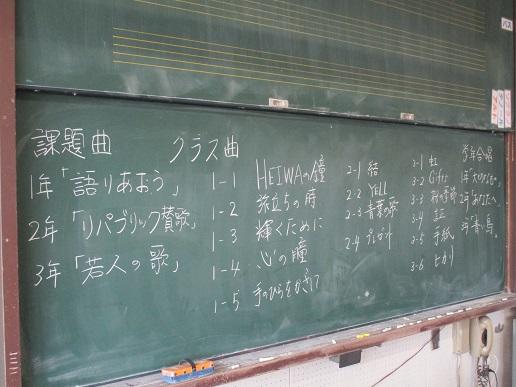 課題曲
1年「語りあおう」
2年「リパブリック賛歌」
3年「若人の歌」
クラス曲
1-1 HEIWAの鐘
1-2 旅立ちの時
1-3 輝くために
1-4 心の瞳
1-5 手のひらをかざして
2-1 結
2-2 YELL
2-3 青葉の歌
2-4 プレゼント
3-1 虹
3-2 Gifts
3-3
3-4 証
3-5 手紙
3-6 ヒカリ
学年合唱
1年
2年
3年「青い鳥」